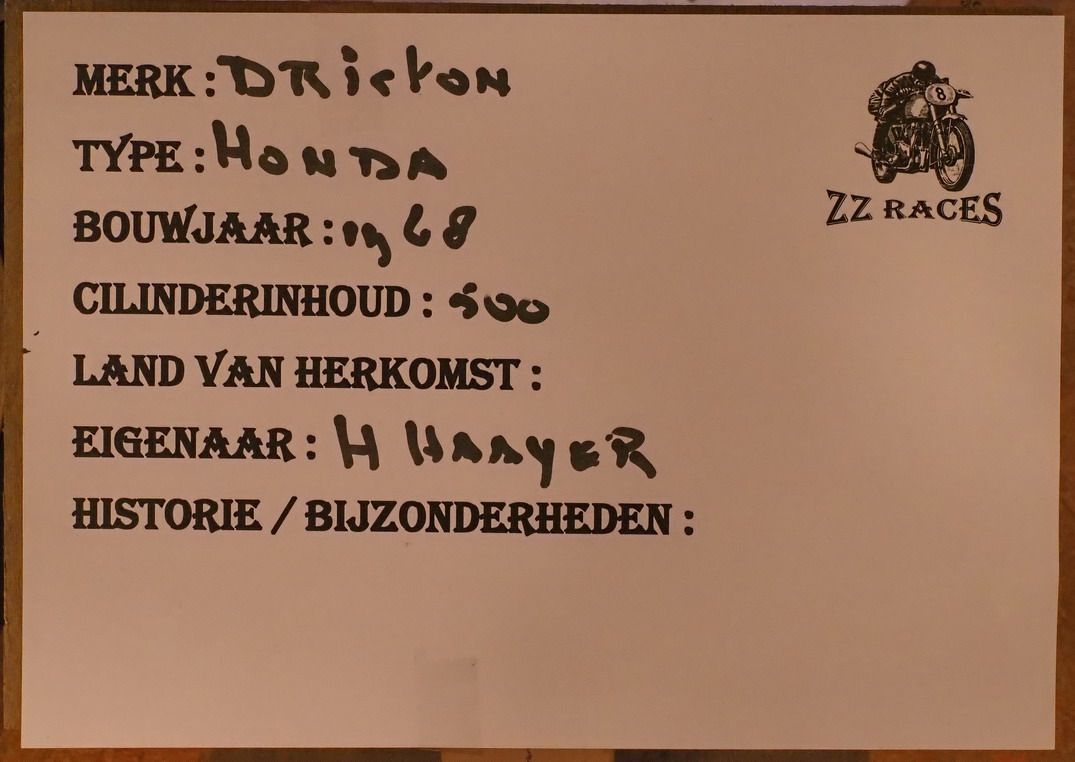 MERK : DRicton
TYPE : HONDA
BOUWJAAR : 1968
CILINDERINHOUD : 500
LAND VAN HERKOMST :
EIGENAAR : H HAAYER
HISTORIE / BIJZONDERHEDEN :
8
ZZ RACES